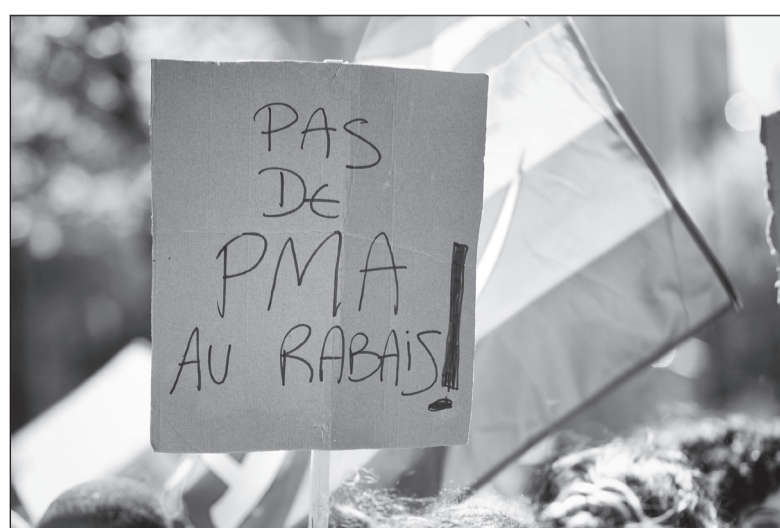 PAS
DE
PMA
AU RABAiS!